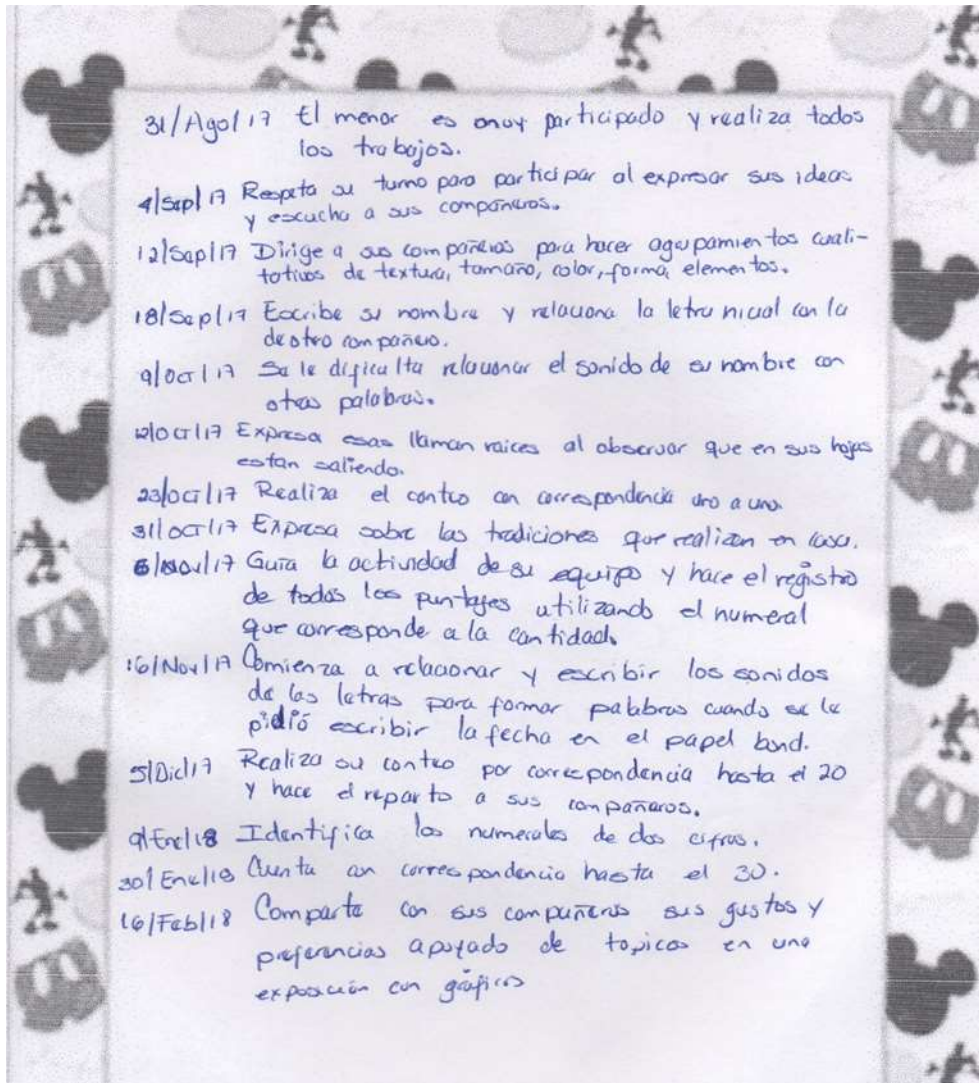 31/Ago/17 El menor es muy participado y realiza todos
los trabajos.
4/Sep/17 Respeta su turno para participar al expresar sus ideas
y escucha a sus compañeros.
12/Sep/17 Dirige a sus compañeros para hacer agrupamientos cuali-
tativos de textura, tamaño, color, forma, elementos.
18/Sep/17 Escribe su nombre y relaciona la letra inicial con la
de otro compañero.
9/Oct/17 Se le dificulta relacionar el sonido de su nombre con
otras palabras.
12/Oct/17 Expresa esas llaman raices al observar que en sus hojas
estan saliendo.
23/Oct/17 Realiza el conteo con correspondencia uno a uno.
31/Oct/17 Expresa sobre las tradiciones que realizan en casa.
6/Nov/17 Guía la actividad de su equipo y hace el registro
de todos los puntajes utilizando el numeral
que corresponde a la cantidad.
16/Nov/17 Comienza a relacionar y escribir los sonidos
de las letras para formar palabras cuando se le
pidió escribir la fecha en el papel bond.
5/Dic/17 Realiza su conteo por correspondencia hasta el 20
y hace el reparto a sus compañeros.
9/Ene/18 Identifica los numerales de dos cifras.
30/Ene/18 Cuenta con correspondencia hasta el 30.
16/Feb/18 Comparte con sus compañeros sus gustos y
preferencias apoyado de topicos en una
exposición con gráficos